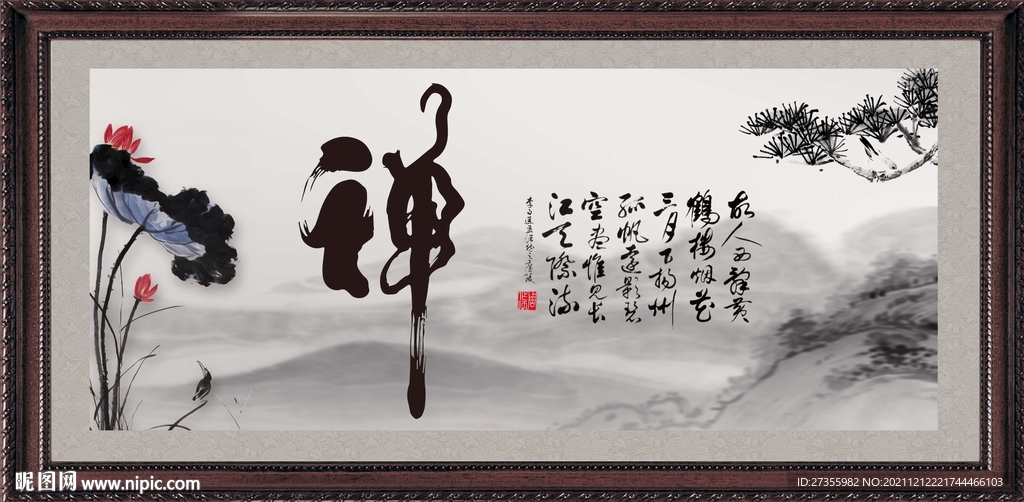 禅
故人西辞黄
鶴楼烟花
三月下揚州
孤帆遠影碧
空尽惟见长
江天際流
李白送孟浩然之廣陵
昵图网 www.nipic.com
ID:27355982 NO:20211212221744466103